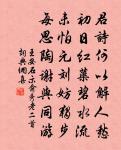 君詩何以解人愁
初日紅蕖碧水流
未怕元劉妨獨步
每思陶謝與同游
王安石示俞秀老二首
詞典網